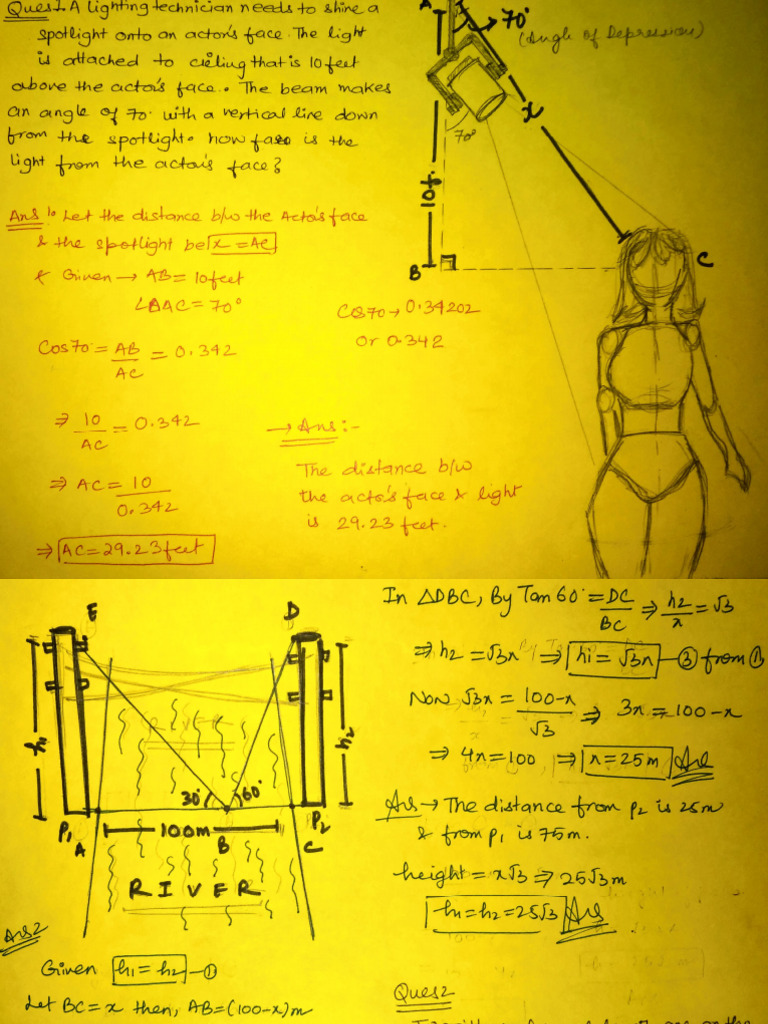 Ques1. A Lighting technician needs to shine a
spotlight onto an actor's face. The light
is attached to cieling that is 10 feet
above the actor's face. The beam makes
an angle of 70° with a vertical line down
from the spotlight. how far is the
light from the actor's face?
Ans 1. Let the distance b/w the Actor's face
& the spotlight be x = AC
& Given → AB = 10 feet
∠BAC = 70°
Cos70 → 0.34202
or 0.342
Cos70° = AB/AC = 0.342
⇒ 10/AC = 0.342
⇒ AC = 10/0.342
⇒ AC = 29.23 feet
→ Ans :-
The distance b/w
the actor's face & light
is 29.23 feet.
A
70°
(Angle of Depression)
x
70°
10f
B
C
E
D
h1
h2
30°
60°
P1
P2
A
100m
B
C
RIVER
Ans2
Given h1 = h2 - ①
Let BC = x then, AB = (100-x)m
In △DBC, By Tan 60° = DC/BC ⇒ h2/x = √3
⇒ h2 = √3x ⇒ h1 = √3x - ③ from ①
Now √3x = 100-x/√3 ⇒ 3x = 100-x
⇒ 4x = 100 ⇒ x = 25m Ans
Ans → The distance from P2 is 25m
& from P1 is 75m.
height = x√3 ⇒ 25√3m
h1 = h2 = 25√3 Ans
Ques2